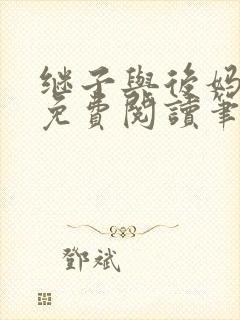 继子與後妈
免費閱讀筆
鄧斌